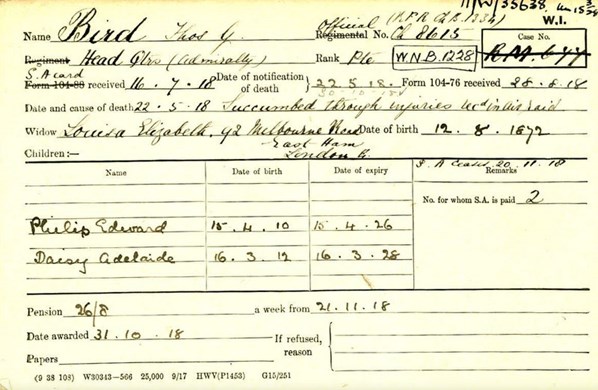 11/W/35638.
Official (R.F.R. Ch.B. 1334) W.I.
Name Bird Thos G. Regimental No. Ch 8615
Case No.
R.M. 677
Regiment Head Qtrs (Admiralty) Rank Pte W.N.B.1228
S.A card
Form 104-88 received 16.7.18 Date of notification of death 22.5.18 Form 104-76 received 28.8.18
30.10.18
Date and cause of death 22.5.18 Succumbed through injuries in air raid
Widow Louisa Elizabeth, 42 Melbourne Road Date of birth 12.8.1872
East Ham
London E.
Children:—
S.A ceases 20.11.18
Name Date of birth Date of expiry Remarks
No. for whom S.A. is paid 2
Philip Edward 15.4.10 15.4.26
Daisy Adelaide 16.3.12 16.3.28
Pension 26/8 a week from 21.11.18
Date awarded 31.10.18 If refused, reason
Papers
(9 38 108) W30343—566 25,000 9/17 HWV(P1453) G15/251